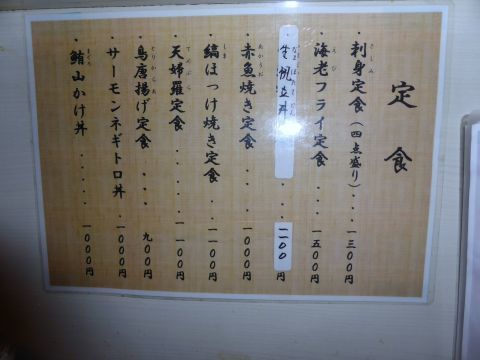 定食
・刺身定食(四点盛り)・・・一三〇〇円
・海老フライ定食・・・一五〇〇円
・生帆立丼・・・一一〇〇円
・赤魚焼き定食・・・一〇〇〇円
・縞ほっけ焼き定食・・・一一〇〇円
・天婦羅定食・・・・一一〇〇円
・鳥唐揚げ定食・・・九〇〇円
・サーモンネギトロ丼・一〇〇〇円
・鮪山かけ丼・・・・・・一〇〇〇円